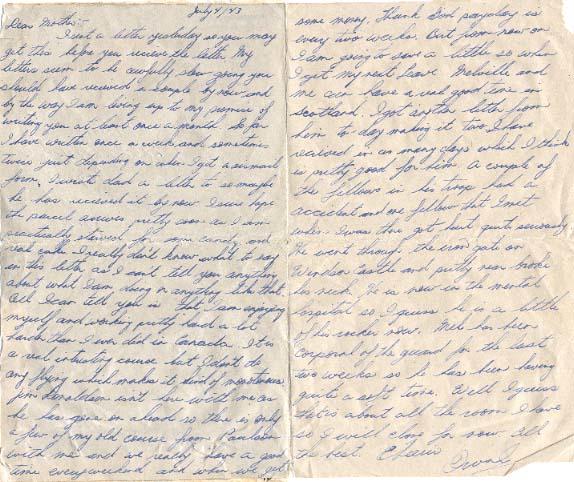 July 4/43
Dear Mother:-
I sent a letter yesterday so you may
get this before you receive the letter. My
letters seem to be awfully slow going you
should have received a couple by now and
by the way I am living up to my promise of
writing you at least once a month. So far
I have written once a week and sometimes
twice just depending on when I get a airmail
form, I wrote dad a letter to so maybe
he has received it by now. I sure hope
the parcel arrives pretty soon as I am
practically starved for some candy and
real cake. I really don't know what to say
in this letter as I can't tell you anything
about what I am doing or anything like that.
All I can tell you is that I am enjoying
myself and working pretty hard a lot
harder than I ever did in Canada. It is
a real interesting course but I don't do
any flying which makes it kind of monotonous.
Jim Donaldson isn't here with me as
he has gone on ahead so there is only
a few of my old course from Paulson
with me and we really have a good
time every weekend and when we get
some money. Thank God payday is
every two weeks. But from now on
I am going to save a little so when
I get my next leave Melville and
me can have a real good time in
Scotland. I got another letter from
him to day making it two I have
received in as many days which I think
is pretty good for him. A couple of
the fellows in his troop had a
accident and one fellow that I met
when I was there got hurt quite seriously.
He went through the iron gate on
Windsor Castle and pretty near broke
his neck. He is now in the mental
hospital so I guess he is a little
off his rocker now. Mel has been
Corporal of the guard for the last
two weeks so he has been having
quite a soft time. Well I guess
that is about all the room I have
so I will close for now. All
the best. Cheerio